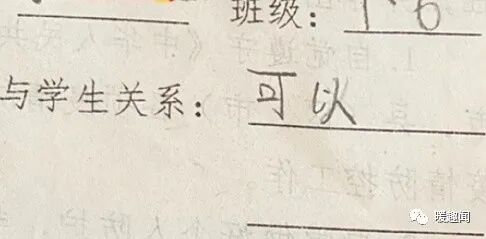 班级：1.6
与学生关系：可以
暖趣闻